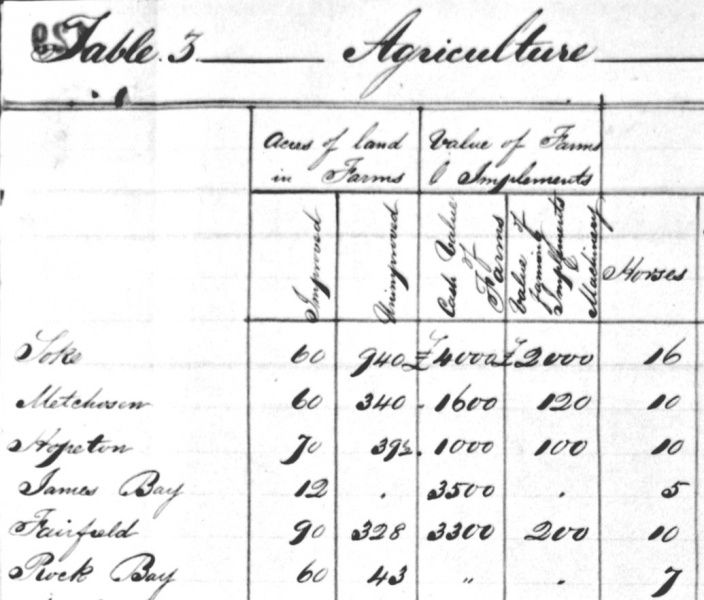 Table 3 Agriculture
Acres of land Value of Farms
in Farms & Implements
Improved Unimproved Cash Value of Farms Value of Farming Implements & Machinery Horses
Soke 60 940 £4000 £2000 16
Metchosin 60 340 1600 120 10
Hopeton 70 39½ 1000 100 10
James Bay 12 . 3500 . 5
Fairfield 90 328 3300 200 10
Rock Bay 60 43 " . 7